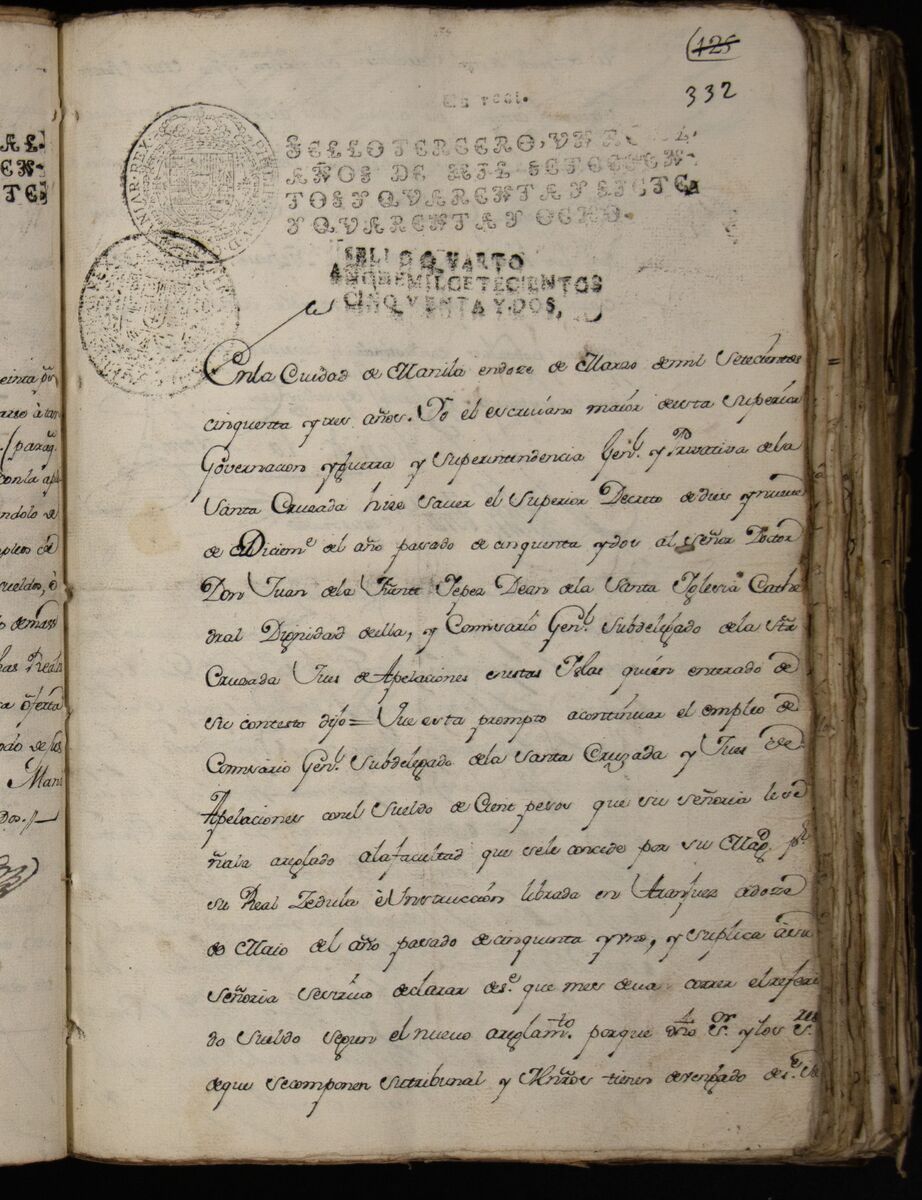 125
332
Un real.
SELLO TERCERO, UN REAL,
AÑOS DE MIL SETECIEN-
TOS Y QVARENTA Y SIETE
Y QVARENTA Y OCHO.
SELLO QVARTO
AÑO DE MIL CETECIENTOS
CINQVENTA Y DOS,
En la Cuidad de Manila en doze de Marzo de mil Setecientos
cinquenta y tres años. Yo el escrivano maior de esta Superior
Governacion y guerra y Superintendencia Gen.l y Privativa de la
Santa Cruzada hize saver el Superior Decreto de diez y nueve
de Diciem.e del año pasado de cinquenta y dos al Señor Doctor
Don Juan de la Fuente Yepez Dean de la Santa Iglesia Cathe
dral Dignidad de ella, y Comisario Gen.l Subdelegado de la Sta
Cruzada Juez de Apelaciones en estas Yslas quien enterado de
su contesto dijo = Que esta prompto a continuar el empleo de
Comisario Gen.l Subdelegado de la Santa Cruzada y Juez de
Apelaciones con el Sueldo de Cient pesos que su señoria le se
ñala arreglado a la facultad que se le concede por su Mag.d p.r
su Real Zedula è Instruccion librada en Aranjuez a doze
de Maio del año pasado de cinquenta y uno, y suplica à su
señoria se sirva declarar desde que mes deva correr el referi
do sueldo segun el nuevo arreglam.to porque dho S.or y los S.res
de que se componen su tribunal y Mnros tienen devengado